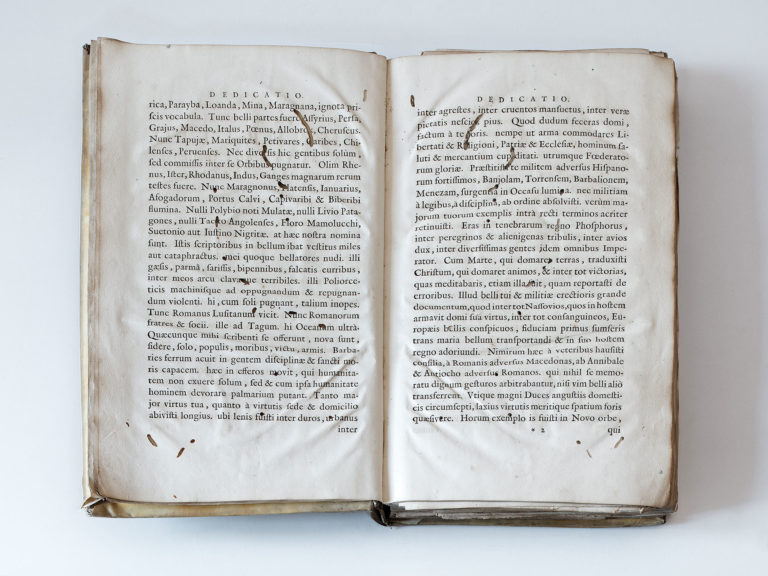 DEDICATIO.
rica, Parayba, Loanda, Mina, Maragnana, ignota pri-
scis vocabula. Tunc belli partes fuere Assyrius, Persa,
Grajus, Macedo, Italus, Pœnus, Allobrox, Cheruscus.
Nunc Tapujæ, Mariquites, Petivares, Caribes, Chi-
lenses, Peruenses. Nec diversis hic gentibus solùm,
sed commissis inter se Orbibus pugnatur. Olim Rhe-
nus, Ister, Rhodanus, Indus, Ganges magnarum rerum
testes fuere. Nunc Maragnonus, Natensis, Ianuarius,
Afogadorum, Portus Calvi, Capivaribi & Biberibi
flumina. Nulli Polybio noti Mulatæ, nulli Livio Pata-
gones, nulli Tacito Angolenses, Floro Mamolucchi,
Suetonio aut Iustino Nigritæ. at hæc nostra nomina
sunt. Istis scriptoribus in bellum ibat vestitus miles
aut cataphractus. mei quoque bellatores nudi. illi
gæsis, parmâ, sarissis, bipennibus, falcatis curribus,
inter meos arcu clavaque terribiles. illi Poliorce-
ticis machinisque ad oppugnandum & repugnan-
dum violenti. hi, cum soli pugnant, talium inopes.
Tunc Romanus Lusitanum vicit. Nunc Romanorum
fratres & socii. ille ad Tagum. hi Oceanum ultrà.
Quæcunque mihi scribenti se offerunt, nova sunt,
sidere, solo, populis, moribus, victu, armis. Barba-
ries ferrum acuit in gentem disciplinæ & sancti mo-
ris capacem. hæc in efferos movit, qui humanita-
tem non exuere solum, sed & cum ipsa humanitate
hominem devorare palmarium putant. Tanto ma-
jor virtus tua, quanto à virtutis sede & domicilio
abivisti longius. ubi lenis fuisti inter duros, urbanus
inter
DEDICATIO.
inter agrestes, inter cruentos mansuetus, inter veræ
pietatis nescios pius. Quod dudum feceras domi,
factum à te foris. nempe ut arma commodares Li-
bertati & Religioni, Patriæ & Ecclesiæ, hominum sa-
luti & mercantium cupiditati. utrumque Fœderato-
rum gloriæ. Præstitisti te militem adversus Hispano-
rum fortissimos, Banjolam, Torrensem, Barbalionem,
Menezam, surgentia in Occasu lumina. nec militiam
à legibus, à disciplina, ab ordine absolvisti. verùm ma-
jorum tuorum exemplis intrà recti terminos acriter
retinuisti. Eras in tenebrarum regno Phosphorus,
inter peregrinos & alienigenas tribulis, inter avios
dux, inter diversissimas gentes idem omnibus Impe-
rator. Cum Marte, qui domaret terras, traduxisti
Christum, qui domaret animos, & inter tot victorias,
quas meditabaris, etiam illa fuit, quam reportasti de
erroribus. Illud belli tui & militiæ erectioris grande
documentum, quod inter tot Nassovios, quos in hostem
armavit domi sua virtus, inter tot consanguineos, Eu-
ropæis bellis conspicuos, fiduciam primus sumseris
trans maria bellum transportandi & in suo hostem
regno adoriundi. Nimirum hæc à veteribus hausisti
consilia, à Romanis adversus Macedonas, ab Annibale
& Antiocho adversus Romanos. qui nihil se memo-
ratu dignum gesturos arbitrabantur, nisi vim belli aliò
transferrent. Vtique magni Duces angustiis domesti-
cis circumsepti, laxius virtutis meritique spatium foris
quæsivere. Horum exemplo is fuisti in Novo orbe,
* 2 qui